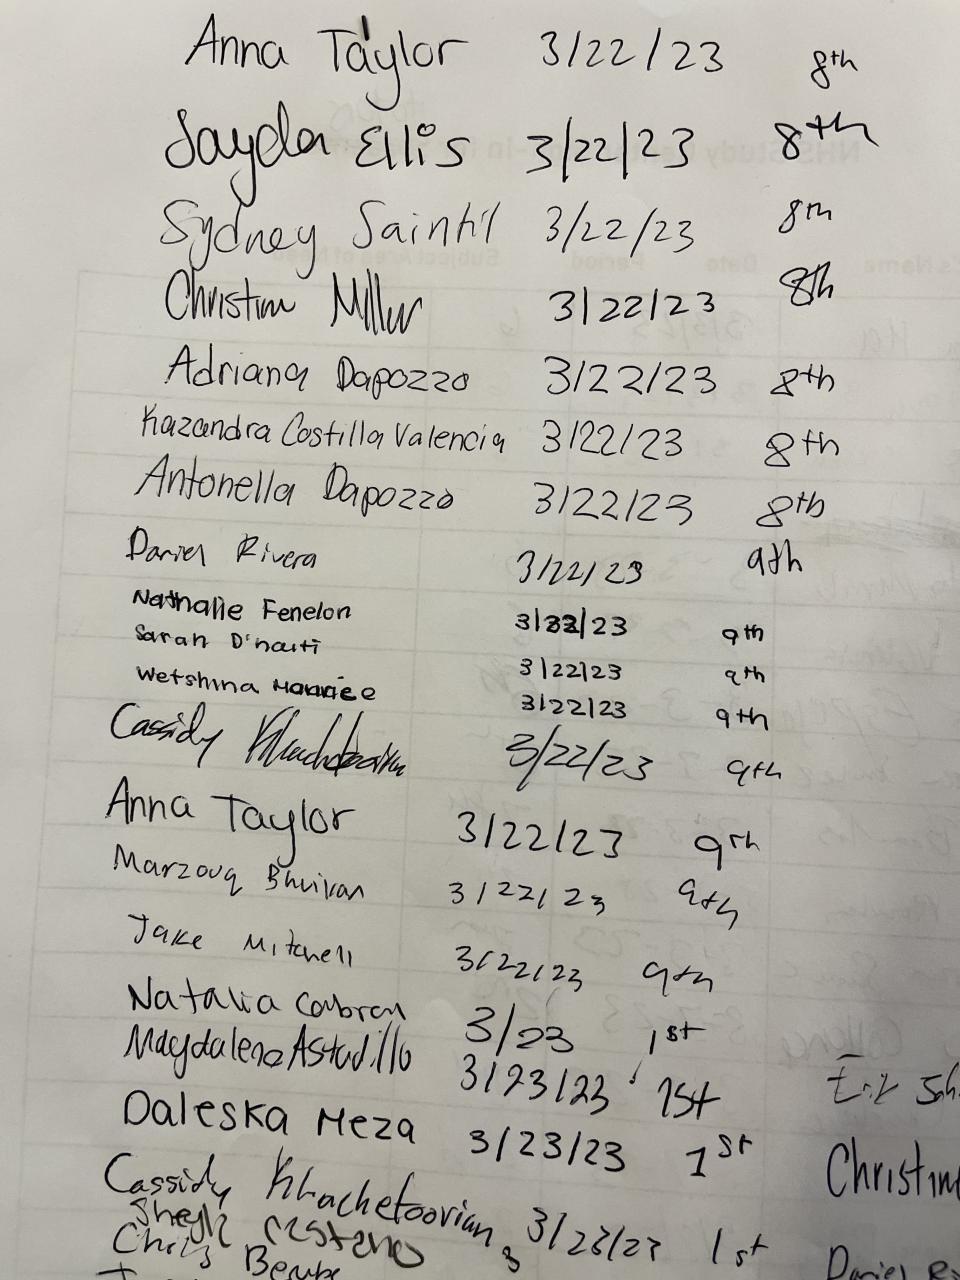 Anna Taylor 3/22/23 8th
Jayda Ellis 3/22/23 8th
Sydney Saintil 3/22/23 8th
Christina Miller 3/22/23 8th
Adriana Dapozzo 3/22/23 8th
Kazandra Costilla Valencia 3/22/23 8th
Antonella Dapozzo 3/22/23 8th
Daniel Rivera 3/22/23 9th
Nathalie Fenelon 3/22/23 9th
Sarah D'haiti 3/22/23 9th
Wetshina Maurice 3/22/23 9th
Cassidy 3/22/23 9th
Anna Taylor 3/22/23 9th
Marzouq Bhuiyan 3/22/23 9th
Jake Mitchell 3/22/23 9th
Natalia Cabrera 3/23 1st
Magdalena Astudillo 3/23/23 1st
Daleska Meza 3/23/23 1st
Cassidy Khachetoorian 3/23/23 1st
Chris